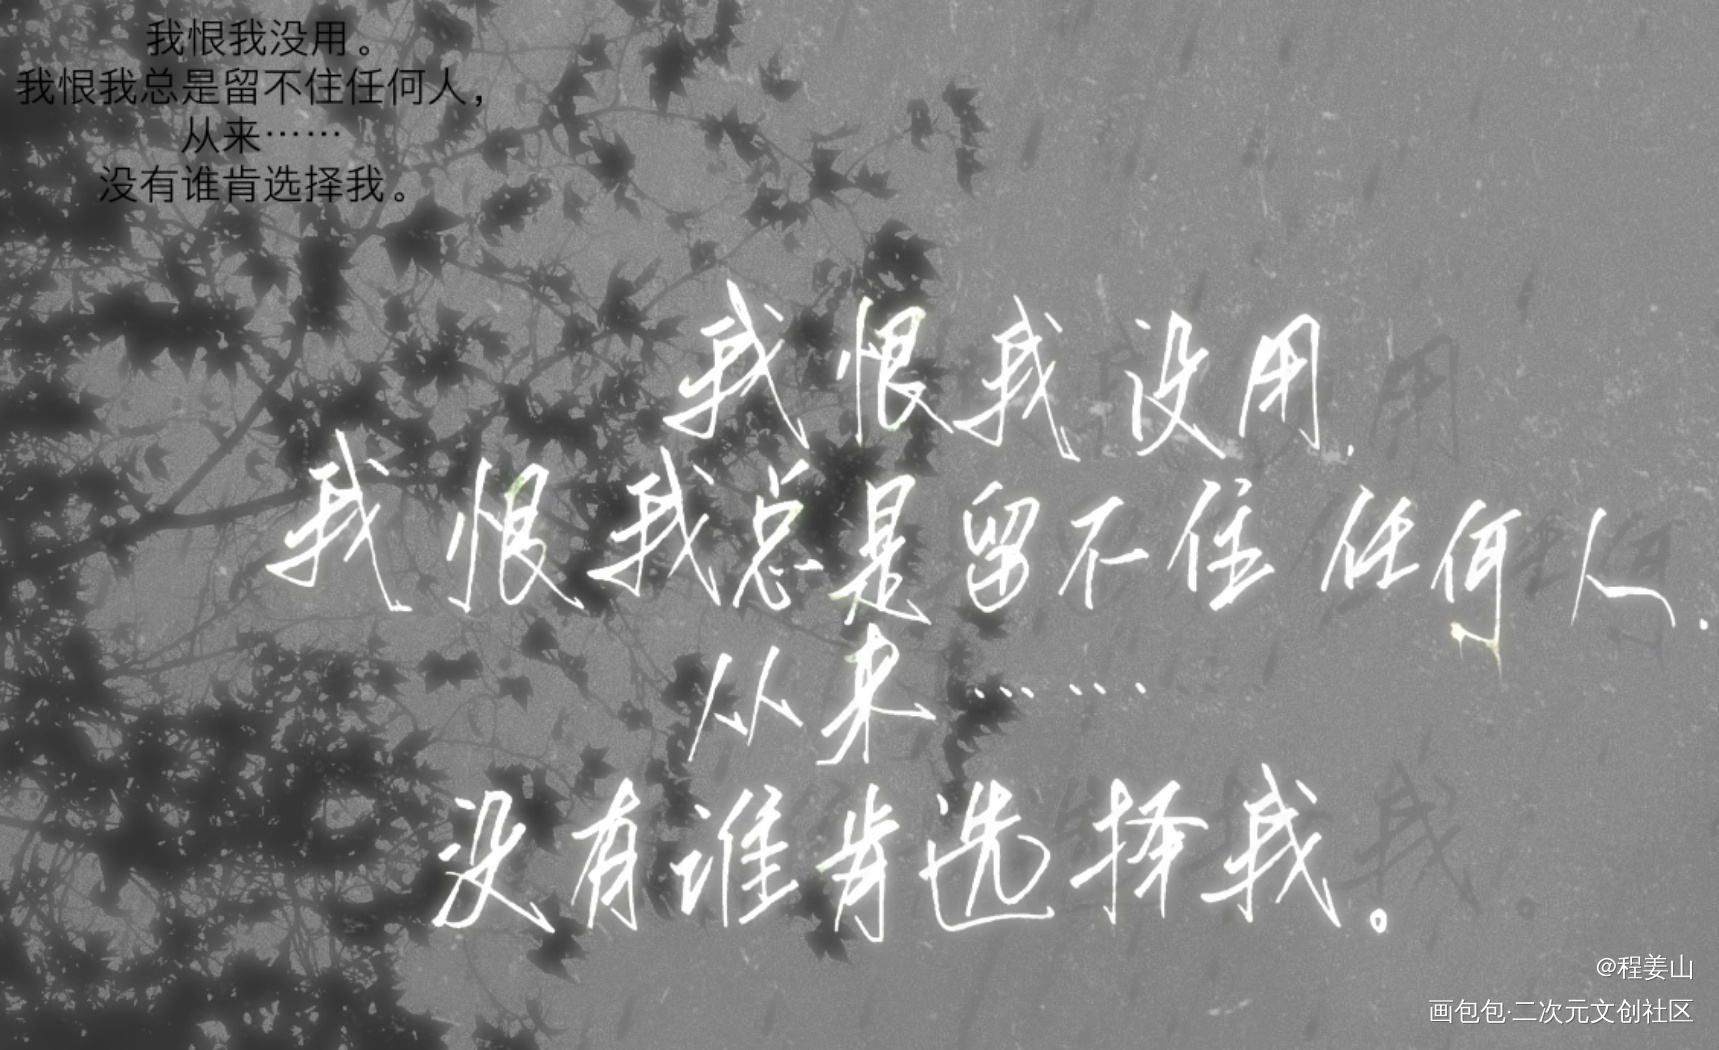 我恨我没用。
我恨我总是留不住任何人，
从来……
没有谁肯选择我。
我恨我没用.
我恨我总是留不住任何人.
从来……
没有谁肯选择我。
@程姜山
画包包·二次元文创社区